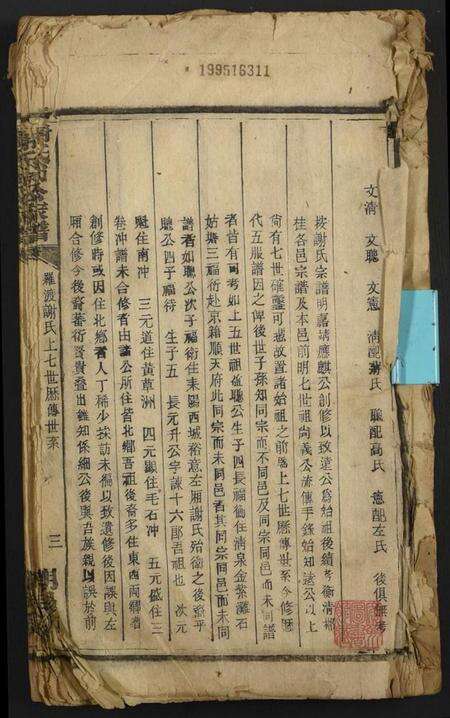 199516311
文清 文聰 文憲 清配蔣氏 聰配高氏 憲配左氏 後俱無考
按謝氏宗譜明嘉靖應麒公創修以致遠公為始祖後續考衡清郴
桂各邑宗譜及本邑前明七世祖尚義公流傳手錄始知遠公以上
尚有七世確鑿可據故置諸始祖之前為上七世歷傳世系今修歷
代五服譜因之俾後世子孫知同宗而不同邑及同宗同邑而未同譜
者皆有可考如上五世祖聰公生子四長福衛住清泉金紫灘石
姑塘三福衍赴京籍順天府此同宗而未同邑者其同宗同邑而未同
譜者如聰公次子福衛住耒陽西城裕意左厢謝氏殆衛之後歟乎
聰公四子福待 生子五 長元升公字諫十六郎吾祖也 次元
魁住南冲 三元道住黃草洲 四元顯住毛石冲 五元盛住三
卷冲譜未合修者由諸公所住皆北鄉吾祖後裔多住東西南鄉者
創修時或因住北鄉者人丁稀少採訪未備以致遺修後因誤與左
厢合修今後裔蕃衍賢貴疊出雖知係細公後與吾族親以誤於前
羅渡謝氏上七世歷傳世系
三